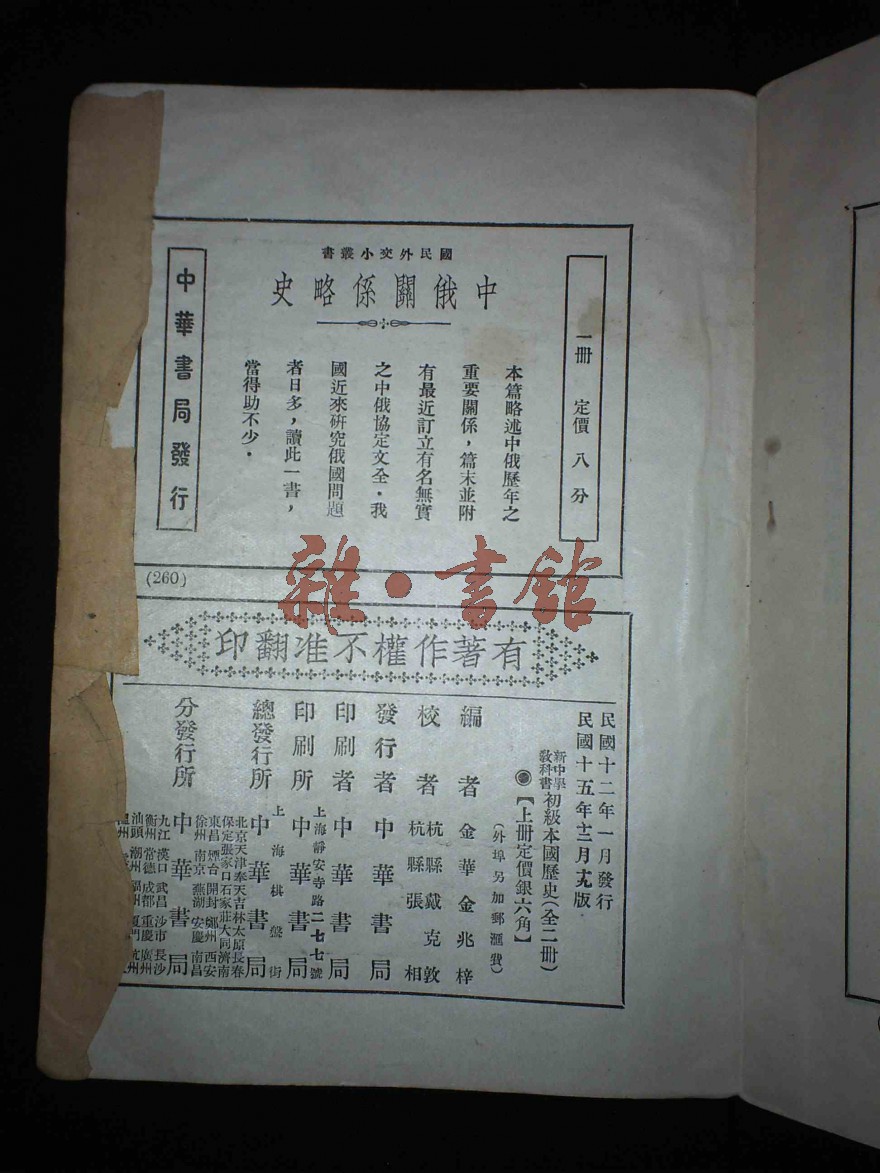 國民外交小叢書
中俄關係略史
一冊　定價　八分
本篇略述中俄歷年之
重要關係，篇末並附
有最近訂立有名無實
之中俄協定文全．我
國近來研究俄國問題
者日多，讀此一書，
當得助不少．
中華書局發行
(260)
雜・書館
有著作權不准翻印
民國十二年一月發行
民國十五年十二月十九版
新中學教科書初級本國歷史(全二冊)
【上冊定價銀六角】
(外埠另加郵滙費)
編者 金華金兆梓
校者 杭縣戴克敦
杭縣張相
發行者 中華書局
印刷者 中華書局
上海靜安寺路二七七號
印刷所 中華書局
上海棋盤街
總發行所 中華書局
北京天津奉天吉林太原長春
保定張家口石家莊大同濟南
東昌 煙台 開封 鄭州 西安
徐州 南京 蕪湖 安慶 南昌
分發行所 中華書局
九江 漢口 武昌 沙市 長沙
衡州 常德 成都 重慶 廣州
汕頭 潮州 福州 廈門 杭州